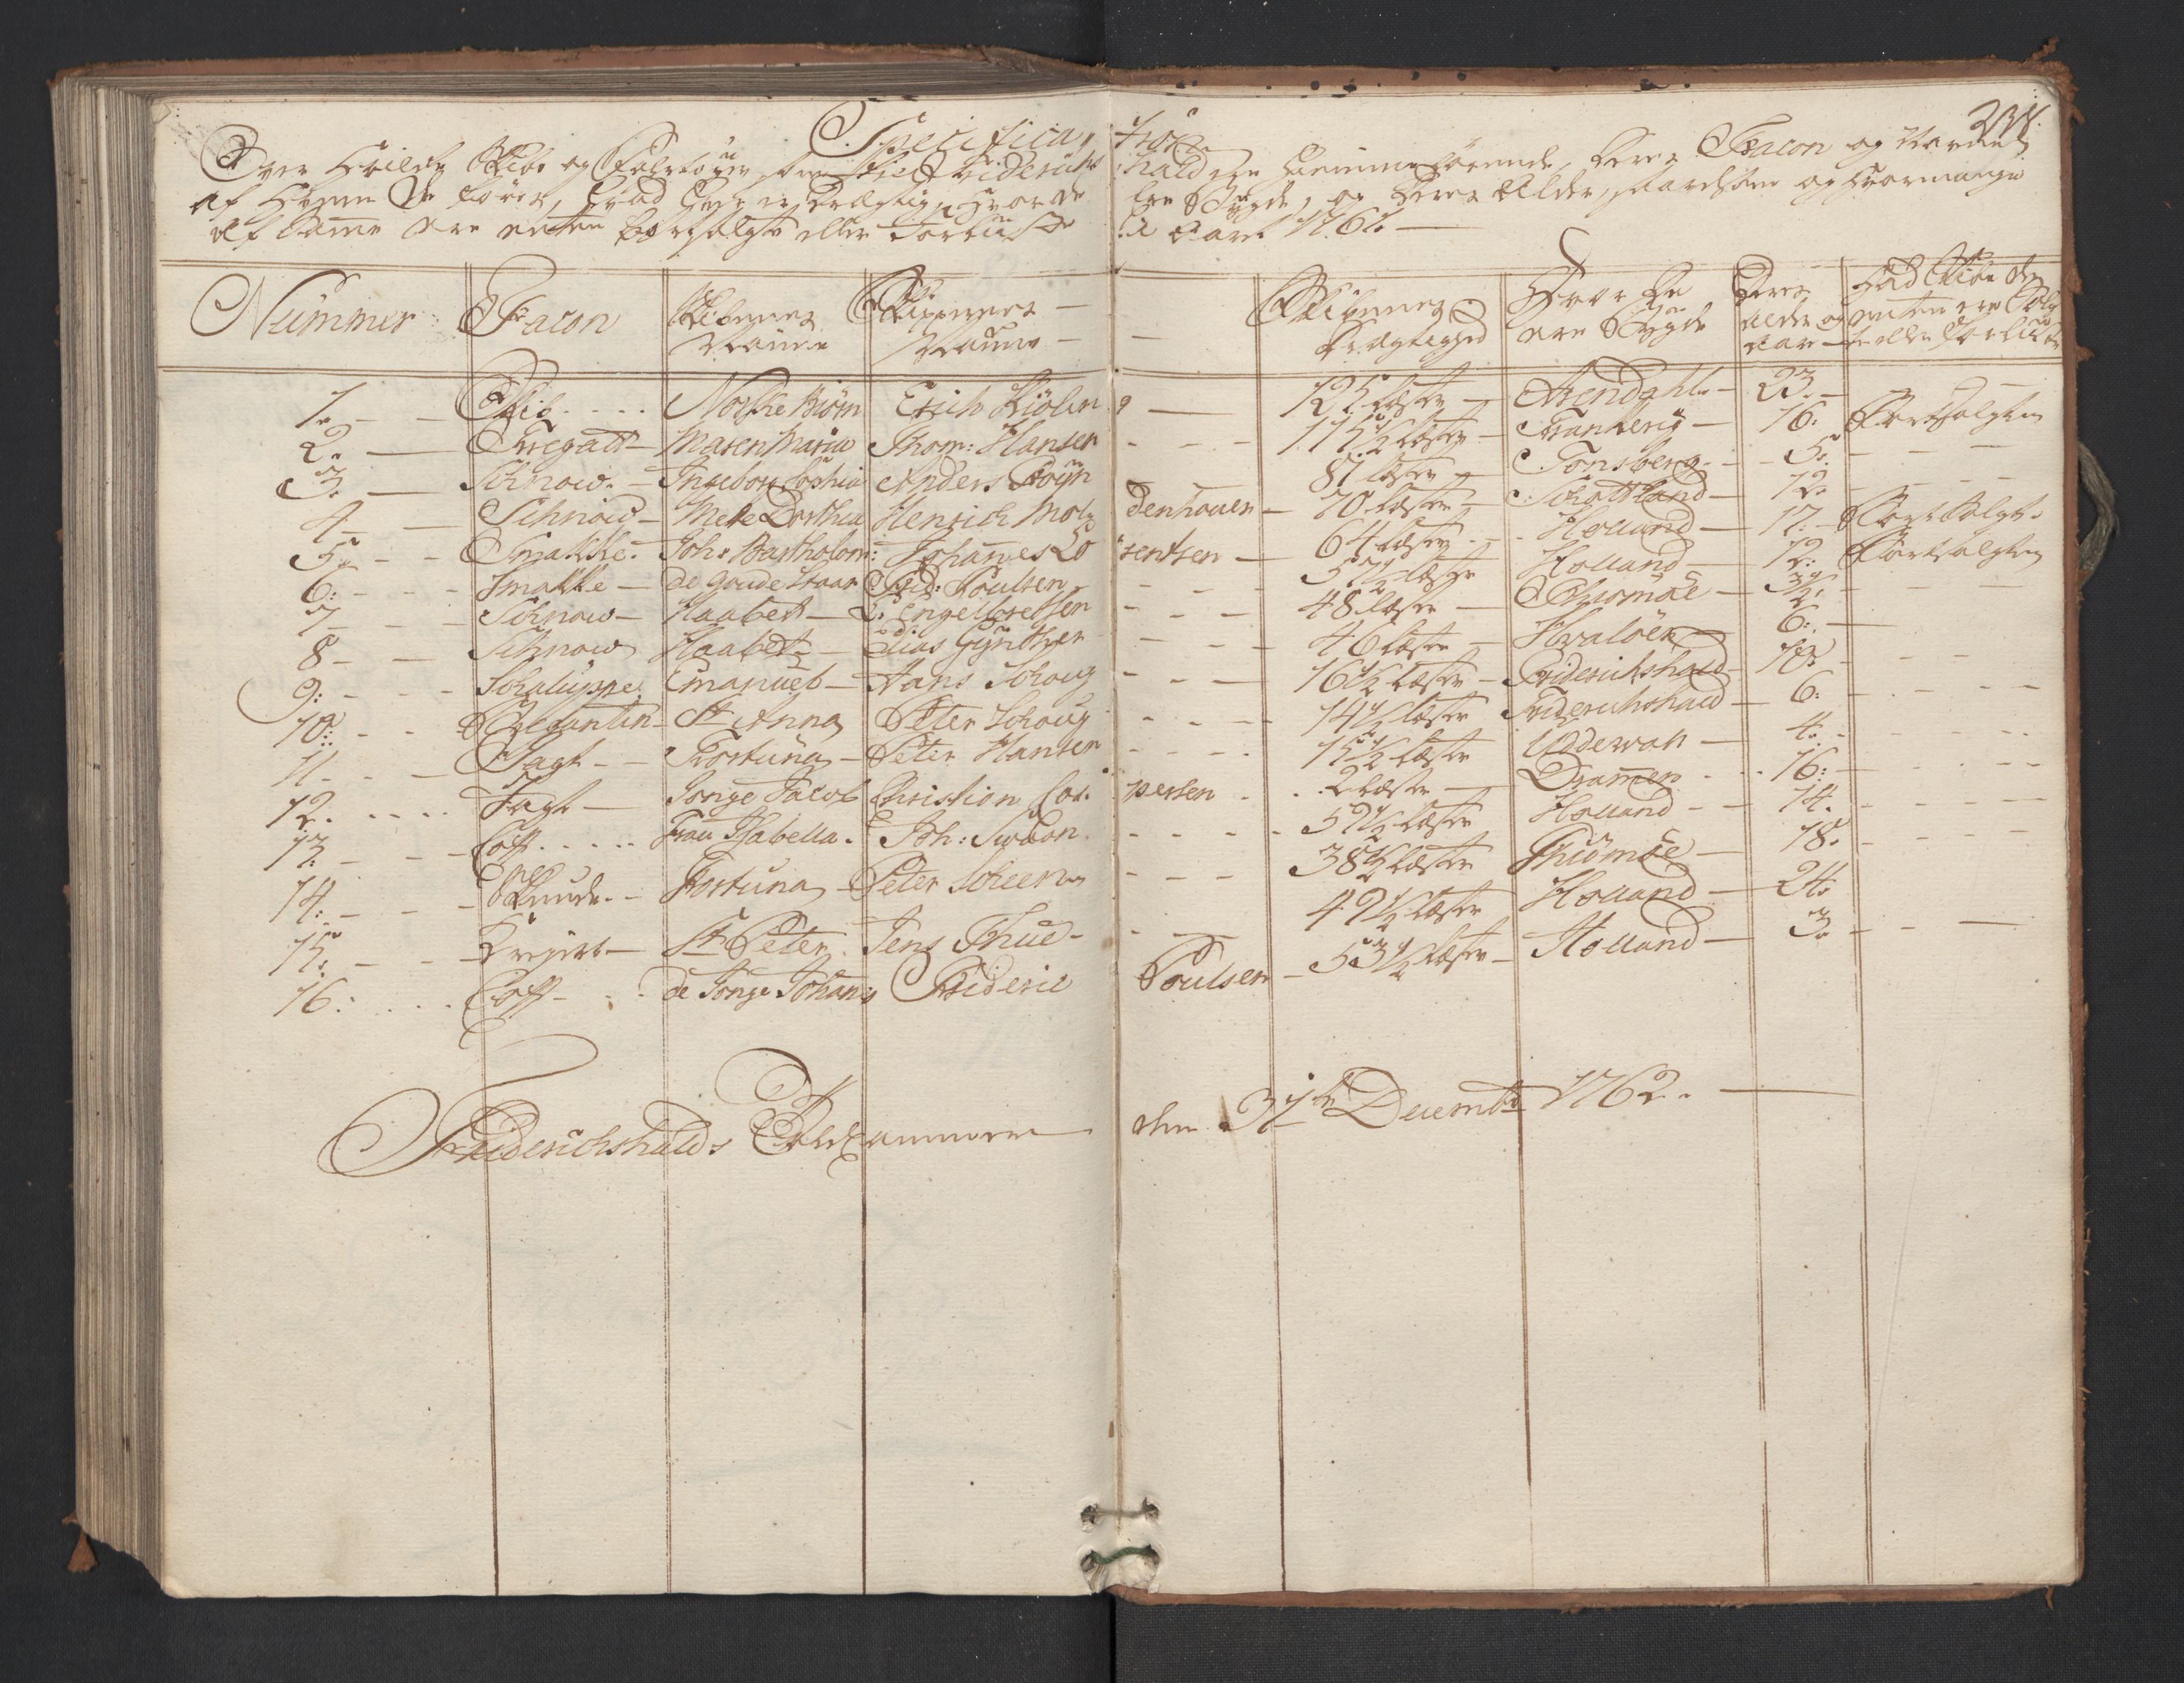 234.
Specification
Over Hvilche Skibe og Fahrtøyer som til Friderichshald ere hiemmehørende, deres Facon og Navne
af Hvem de føres, hvad hver er drægtig, hvor de ere Bygde, og deres Alder, saavelsom og hvormange
af samme ere enten bortsolgte eller forliiste i aaret 1762.
Nummer Facon Skibenes Skippernes Skibenes Hvor de Deres Hvad Skibe der
Navne Navne Drægtighed ere Bygde alder og enten ere Solg-
aar te eller forliiste
1. Skib Norske Biørn Erich Kiølen 125 Læster Arendahl 23.
2. Fregatt Maren Maria Thom: Hansen 115 1/2 Læster 16. Bortsolgten
3. Schnow Ingebor Sophia Anders Føyn 81 Læster Tonsberg 5.
4. Schnow Mete Dorthea Henrich Moldenhauer 70 Læster Schottland 12.
5. Smakke Joh: Bartholom: Johannes Lorentsen 64 Læster Holland 17. Bortsolgt.
6: Smakke De Goude Staar Frid: Poulsen 57 1/2 Læster Holland 12. Bortsolgten
7 Schnow Haabet L: Engelbretsen 48 Læster Chromøe 3 1/2
8 Schnow Haabet Elias Gynther 46 Læster Hvaløen 6.
9: Schaluppe Emanuel Hans Schoug 16 1/2 Læster Friderichshald 10.
10: Brefantin St Anna Peter Schoug 14 1/2 Læster Friderichshald 6:
11 Jagt Fortuna Peter Hansen 15 1/2 Læster Oddewah 4.
12. Jagt Jonge Jacob Christian Caspersen 2 Læster Dramen 16:
13. Coff Frau Isabella. Joh: Swaan 59 1/2 Læster Holland 14.
14: Skude Fortuna Peter Scheen 38 1/2 Læster Thromøe 18.
15. Krejert St Peter. Jens Thue 49 1/2 Læster Holland 24.
16: Coff de Jonge Johans Frideric Poulsen 53 1/2 Læster Holland 3.
Friderichshalds Toldkammer den 31te Decembr 1762.